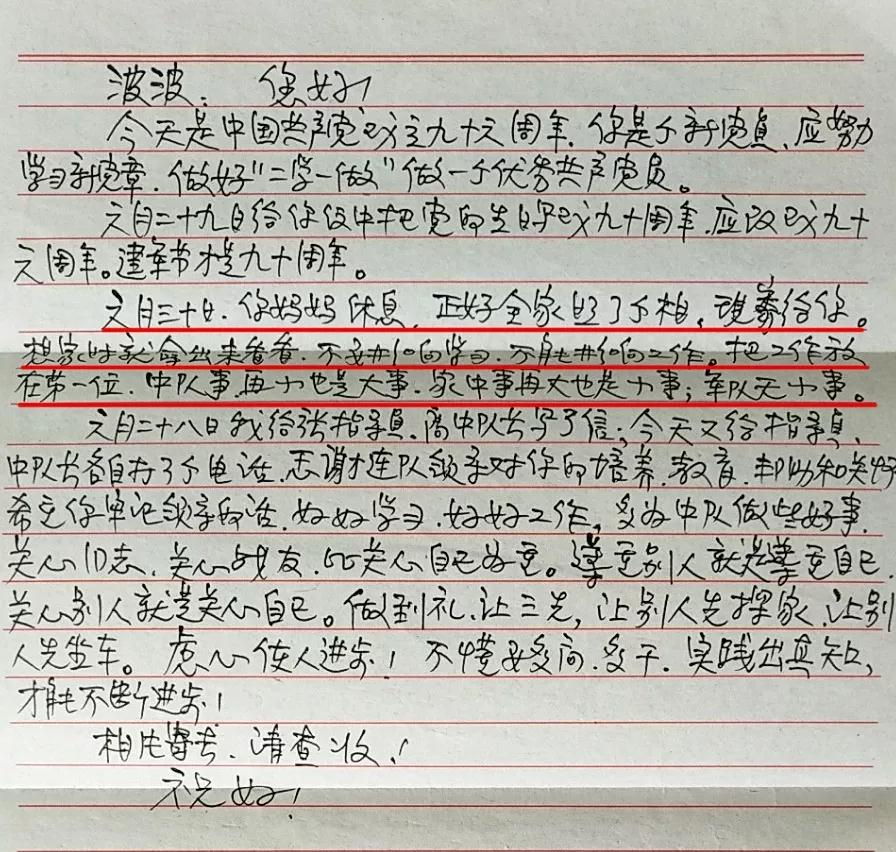 波波：您好！
今天是中国共产党成立九十六周年，你是个新党员，应努力
学习新党章，做好"二学一做"做一个优秀共产党员。
六月二十九日给你信中把党的生日写成九十周年，应改成九十
六周年。建军节才是九十周年。
六月三十日，你妈妈休息，正好全家照了个相，现寄给你。
想家时就拿出来看看，不影响学习，不影响工作。把工作放
在第一位，中队事再小也是大事，家中事再大也是小事；军队无小事。
六月二十八日我给张指导员、周中队长写了信；今天又给指导员、
中队长各自打了个电话，感谢连队领导对你的培养、教育、帮助和关怀
希望你牢记领导的话，好好学习，好好工作，多为中队做些好事，
关心同志、关心战友，比关心自己为重。尊重别人就是尊重自己，
关心别人就是关心自己。做到礼、让三先，让别人先探家，让别
人先坐车。虚心使人进步！不懂要多问，多干，实践出真知，
才能不断进步！
相片寄去，请查收！
祝好！